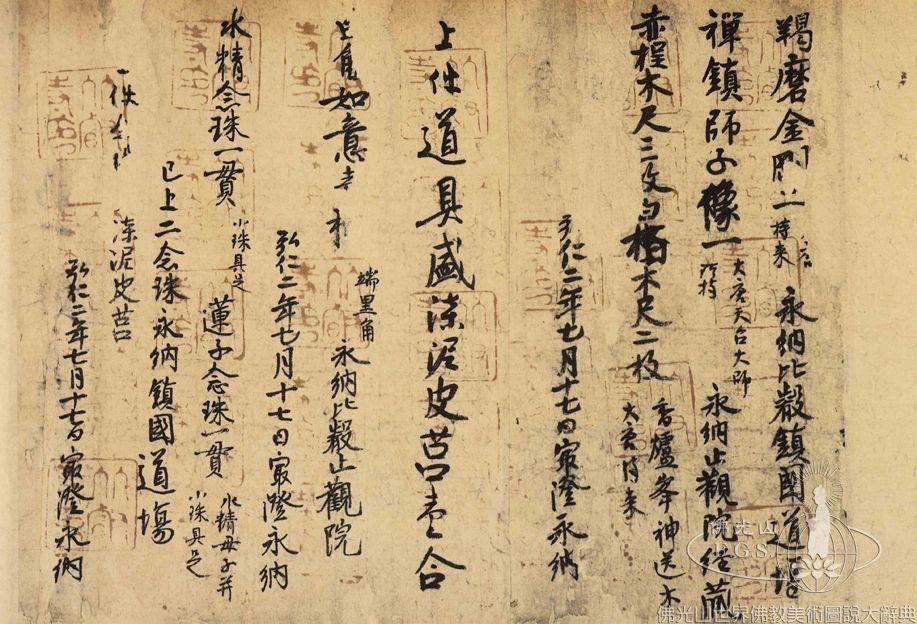 羯磨金剛二 持来 永納比叡鎮國道場
禪鎮師子像一 大唐天台大師所持 永納止觀院経蔵
赤樫木尺三枚 白檀木尺二枚 香爐峯神送木 大唐将来
弘仁二年七月十七日最澄永納
上件道具盛漆泥皮筥壱合
如意 端黒角 永納比叡止觀院
弘仁二年七月十七日最澄永納
水精念珠一貫 小珠具足 蓮子念珠一貫 水精母子并小珠具足
已上二念珠永納鎮國道場
漆泥皮筥
弘仁二年七月十七日最澄永納
佛光山
D.G.S.
佛光山世界佛教美術圖說大辭典